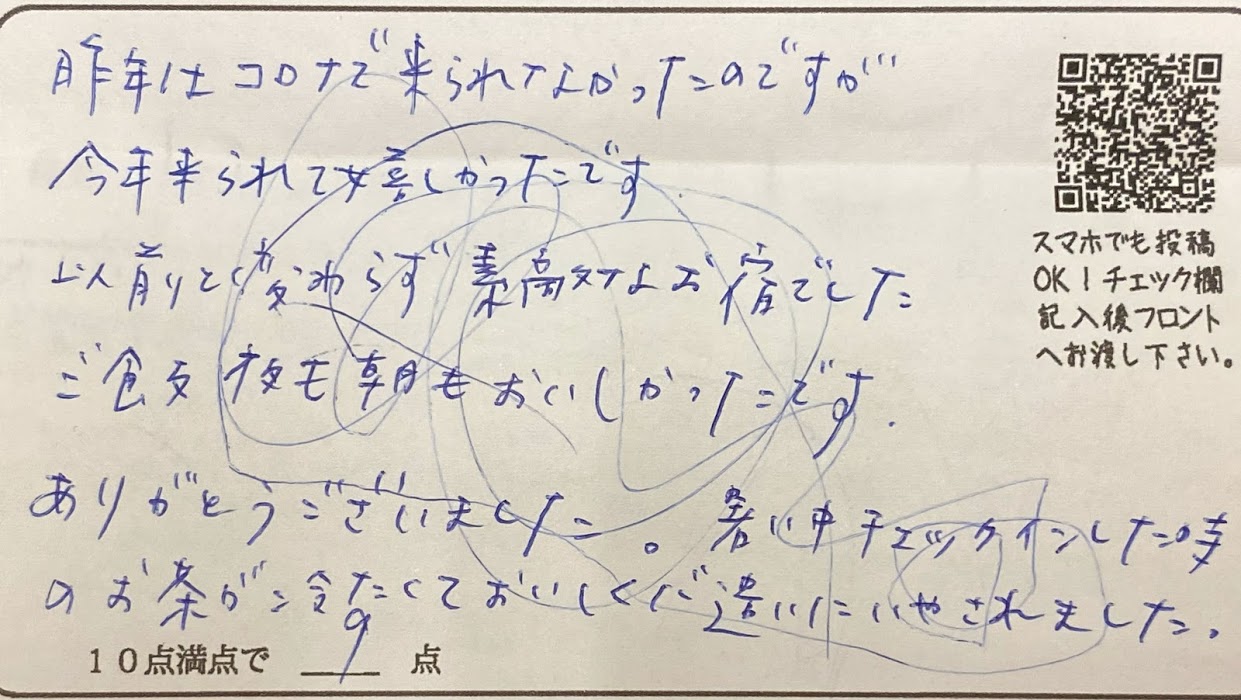 昨年はコロナで来られなかったのですが
今年来られて嬉しかったです
以前と変わらず素敵なお宿でした
ご食事 夜も朝もおいしかったです.
ありがとうございました。暑い中チェックインした時
のお茶が冷たくておいしくお心遣いにいやされました。
10点満点で 9 点
スマホでも投稿
OK!チェック欄
記入後フロント
へお渡し下さい。